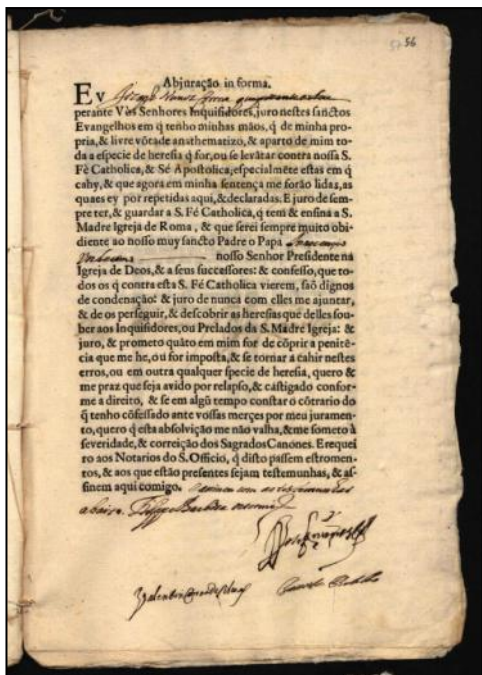 56
Abjuração in forma.
EV
perante Vòs Senhores Inquisidores, juro nestes sanctos
Evangelhos em q̃ tenho minhas mãos, q̃ de minha pro-
pria, & livre võtade anathematizo, & aparto de mim to-
da a especie de heresia q̃ for, ou se levãtar contra nossa S.
Fè Catholica, & Sé Apostolica, especialmẽte estas em q̃
cahy, & que agora em minha sentença me forão lidas, as
quaes ey por repetidas aqui, & declaradas. E juro de sem-
pre ter, & guardar a S. Fé Catholica, q̃ tem & ensina a S.
Madre Igreja de Roma, & que serei sempre muito obi-
diente ao nosso muy sancto Padre o Papa
nosso Senhor Presidente na
Igreja de Deos, & a seus successores: & confesso, que to-
dos os q̃ contra esta S. Fé Catholica vierem, saõ dignos
de condenação: & juro de nunca com elles me ajuntar,
& de os perseguir, & descobrir as heresias que delles sou-
ber aos Inquisidores, ou Prelados da S. Madre Igreja: &
juro, & prometo quãto em mim for de cõprir a penitẽ-
cia que me he, ou for imposta, & se tornar a cahir nestes
erros, ou em outra qualquer specie de heresia, quero &
me praz que seja avido por relapso, & castigado confor-
me a direito, & se em algũ tempo constar o cõtrario do
q̃ tenho cõfessado ante vossas merçes por meu juramen-
to, quero q̃ esta absolvição me não valha, & me someto à
severidade, & correição dos Sagrados Canones. E requei
ro aos Notarios do S. Officio, q̃ disto passem estromen-
tos, & aos que estão presentes sejam testemunhas, & as-
sinem aqui comigo.